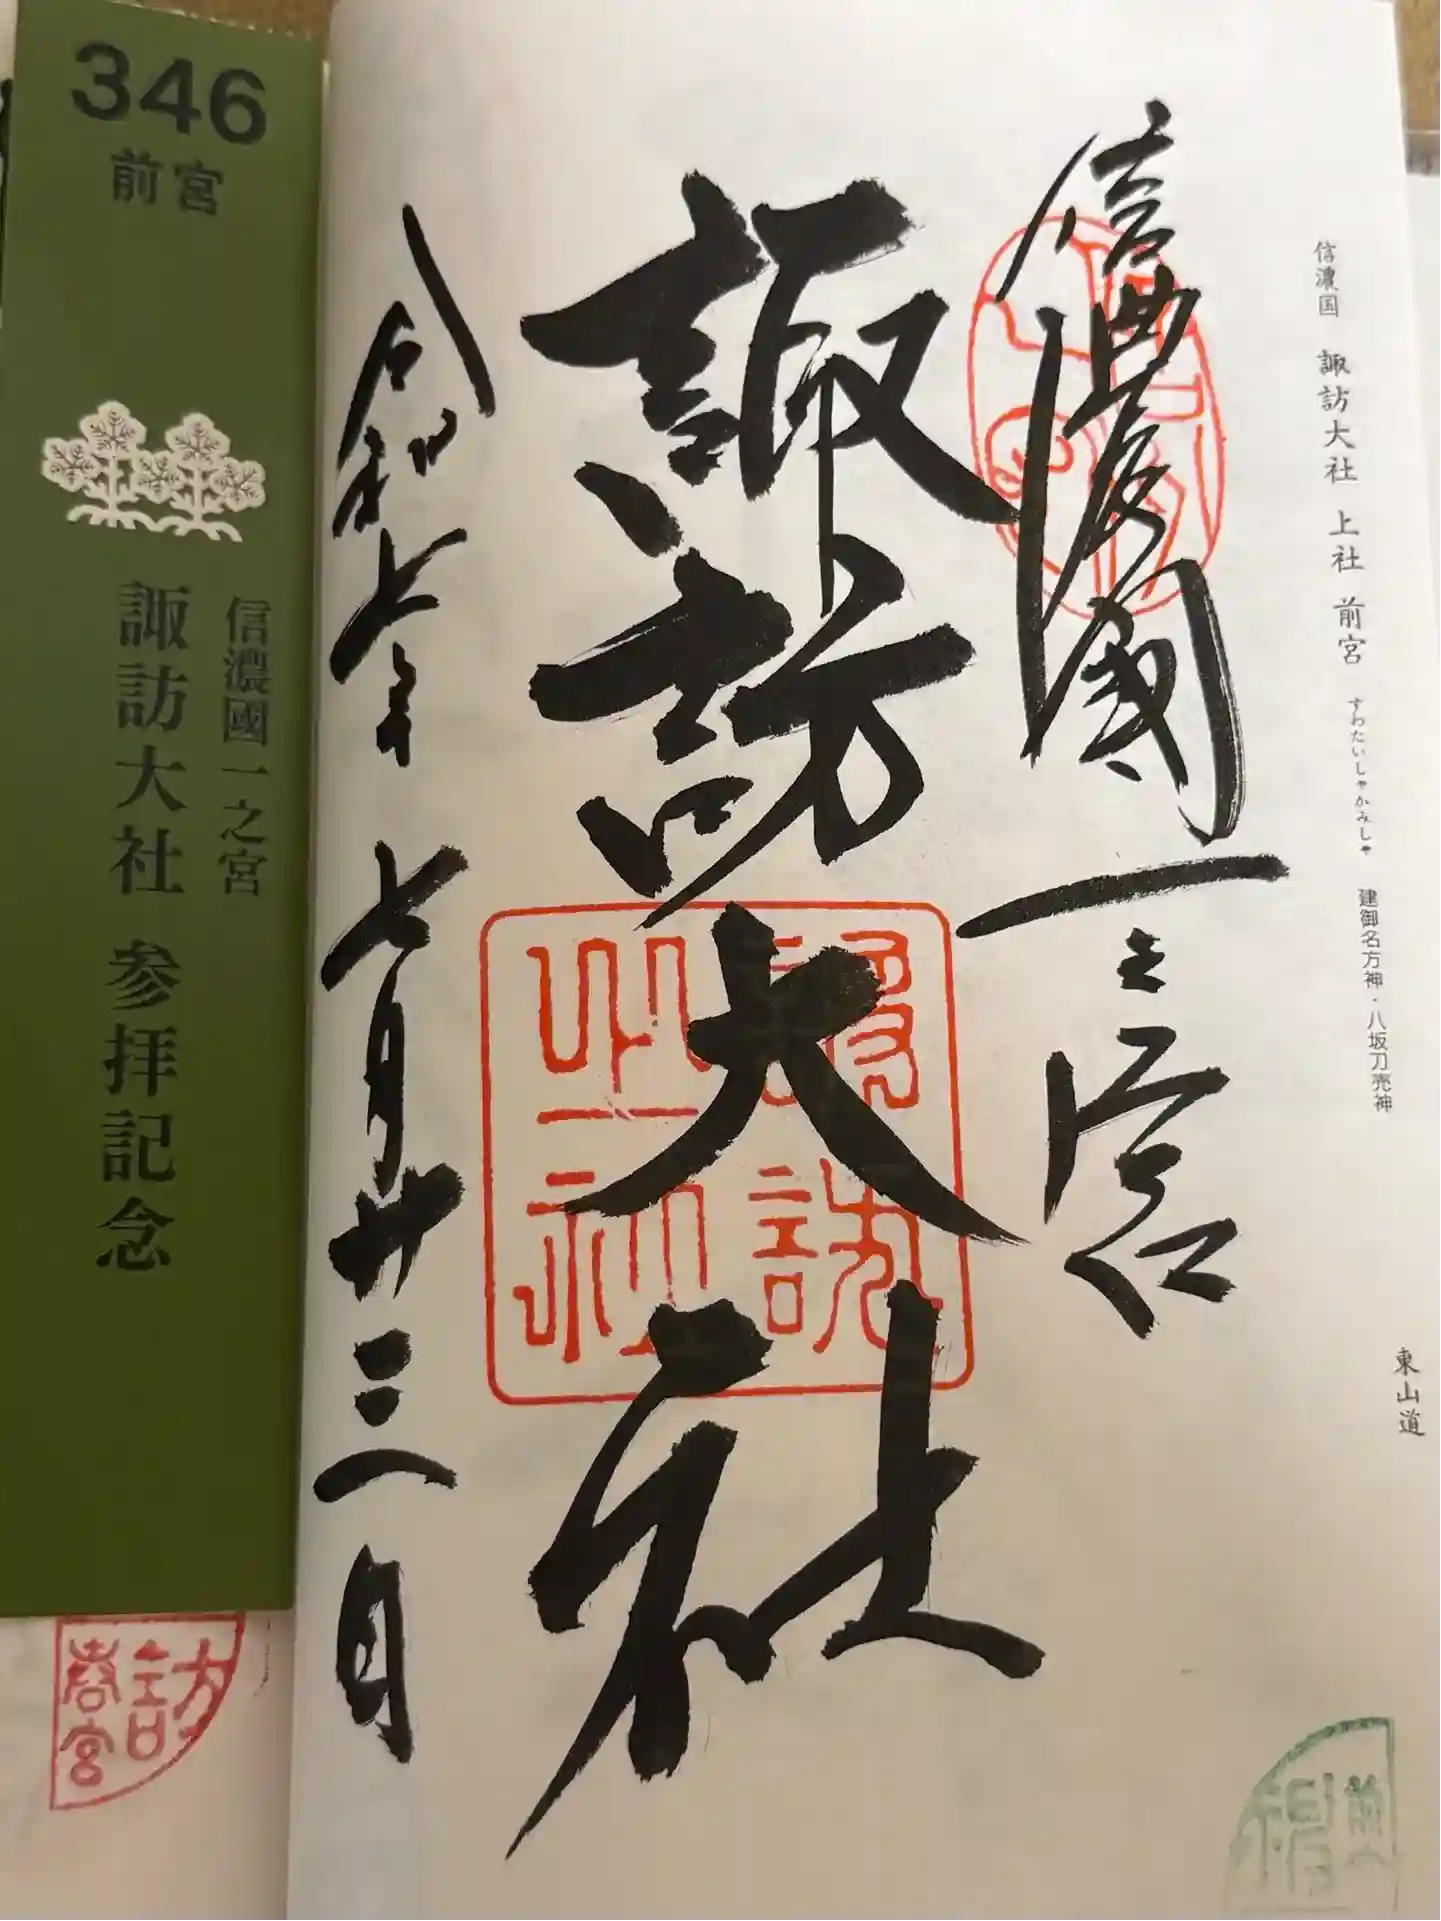 信濃国 諏訪大社 上社 前宮 すわたいしゃかみしゃ 建御名方神・八坂刀売神 東山道
信濃國一之宮
諏訪大社
令和七年七月廿三日
346
前宮
信濃國一之宮
諏訪大社 参拝記念
諏訪
大社
訪
春宮
前